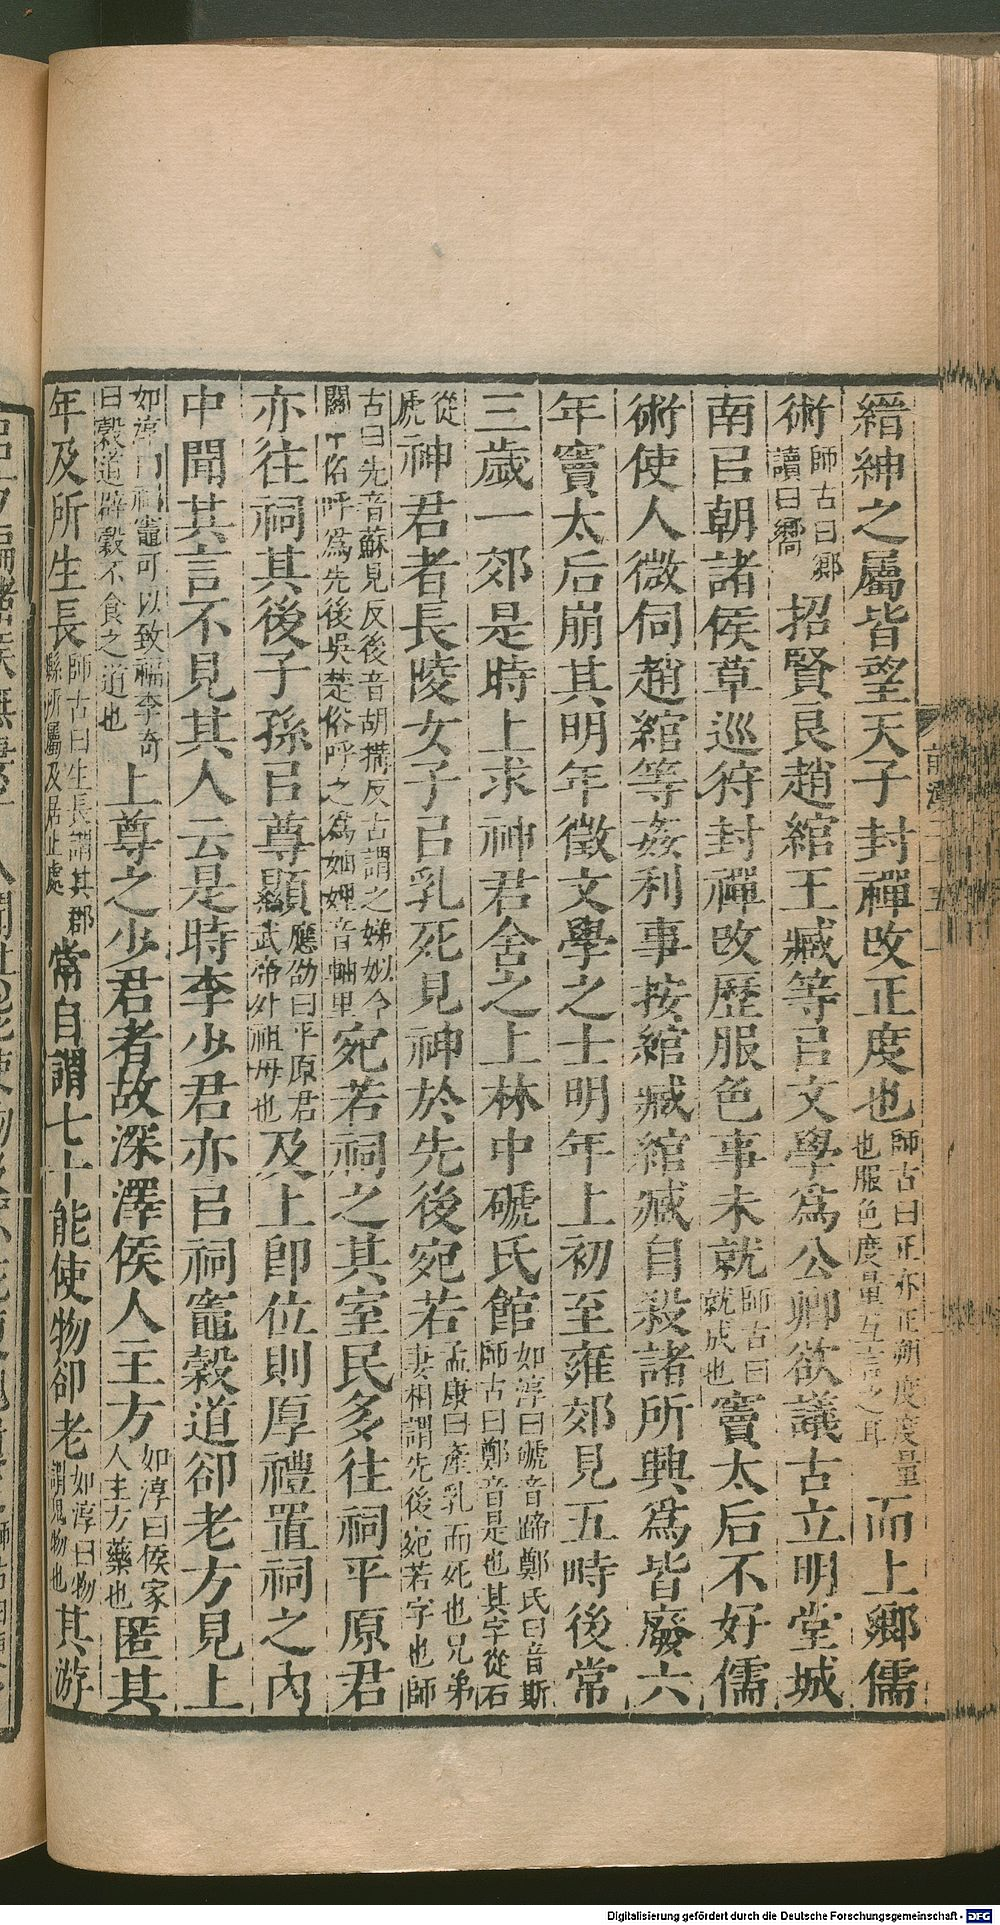 縉紳之屬皆望天子封禪攺正度也師古曰正亦正朔度度量也服色度量互言之耳而上鄉儒
術師古曰鄉讀曰嚮招賢良趙綰王臧等㠯文學爲公卿欲議古立明堂城
南㠯朝諸侯草巡狩封禪攺歷服色事未就師古曰就成也竇太后不好儒
術使人微伺趙綰等姦利事按綰臧綰臧自殺諸所興爲皆廢六
年竇太后崩其明年徵文學之士明年上初至雍郊見五畤後常
三歲一郊是時上求神君舍之上林中磃氏館如淳曰磃音蹄鄭氏曰音斯師古曰鄭音是也其字從石
從虒神君者長陵女子㠯乳死見神於先後宛若孟康曰產乳而死也兄弟妻相謂先後宛若字也師
古曰先音蘇見反後音胡搆反古謂之娣姒今關中俗呼爲先後吳楚俗呼之爲妯娌音軸里宛若祠之其室民多往祠平原君
亦往祠其後子孫㠯尊顯應劭曰平原君武帝外祖母也及上卽位則厚禮置祠之內
中聞其言不見其人云是時李少君亦㠯祠竈穀道卻老方見上
如淳曰祠竈可以致福李奇曰穀道辟穀不食之道也上尊之少君者故深澤侯人主方如淳曰侯家人主方藥也匿其
年及所生長師古曰生長謂其郡縣所屬及居止處常自謂七十能使物卻老如淳曰物謂鬼物也其游
Digitalisierung gefördert durch die Deutsche Forschungsgemeinschaft - DFG